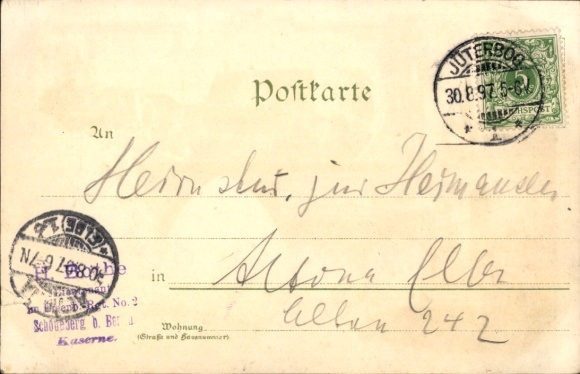 Postkarte
JÜTERBOG
30.8.97.5-6N
5
REICHSPOST
An
Herrn stud. jur Heymander
in Altona Elbe
Allee 242
Wohnung
(Straße und Hausnummer)
(ELBE)
30.8.97 6-7N
H. Bothe
Eisenb.-Rgt. No. 2
Schöneberg b. Berlin
Kaserne.